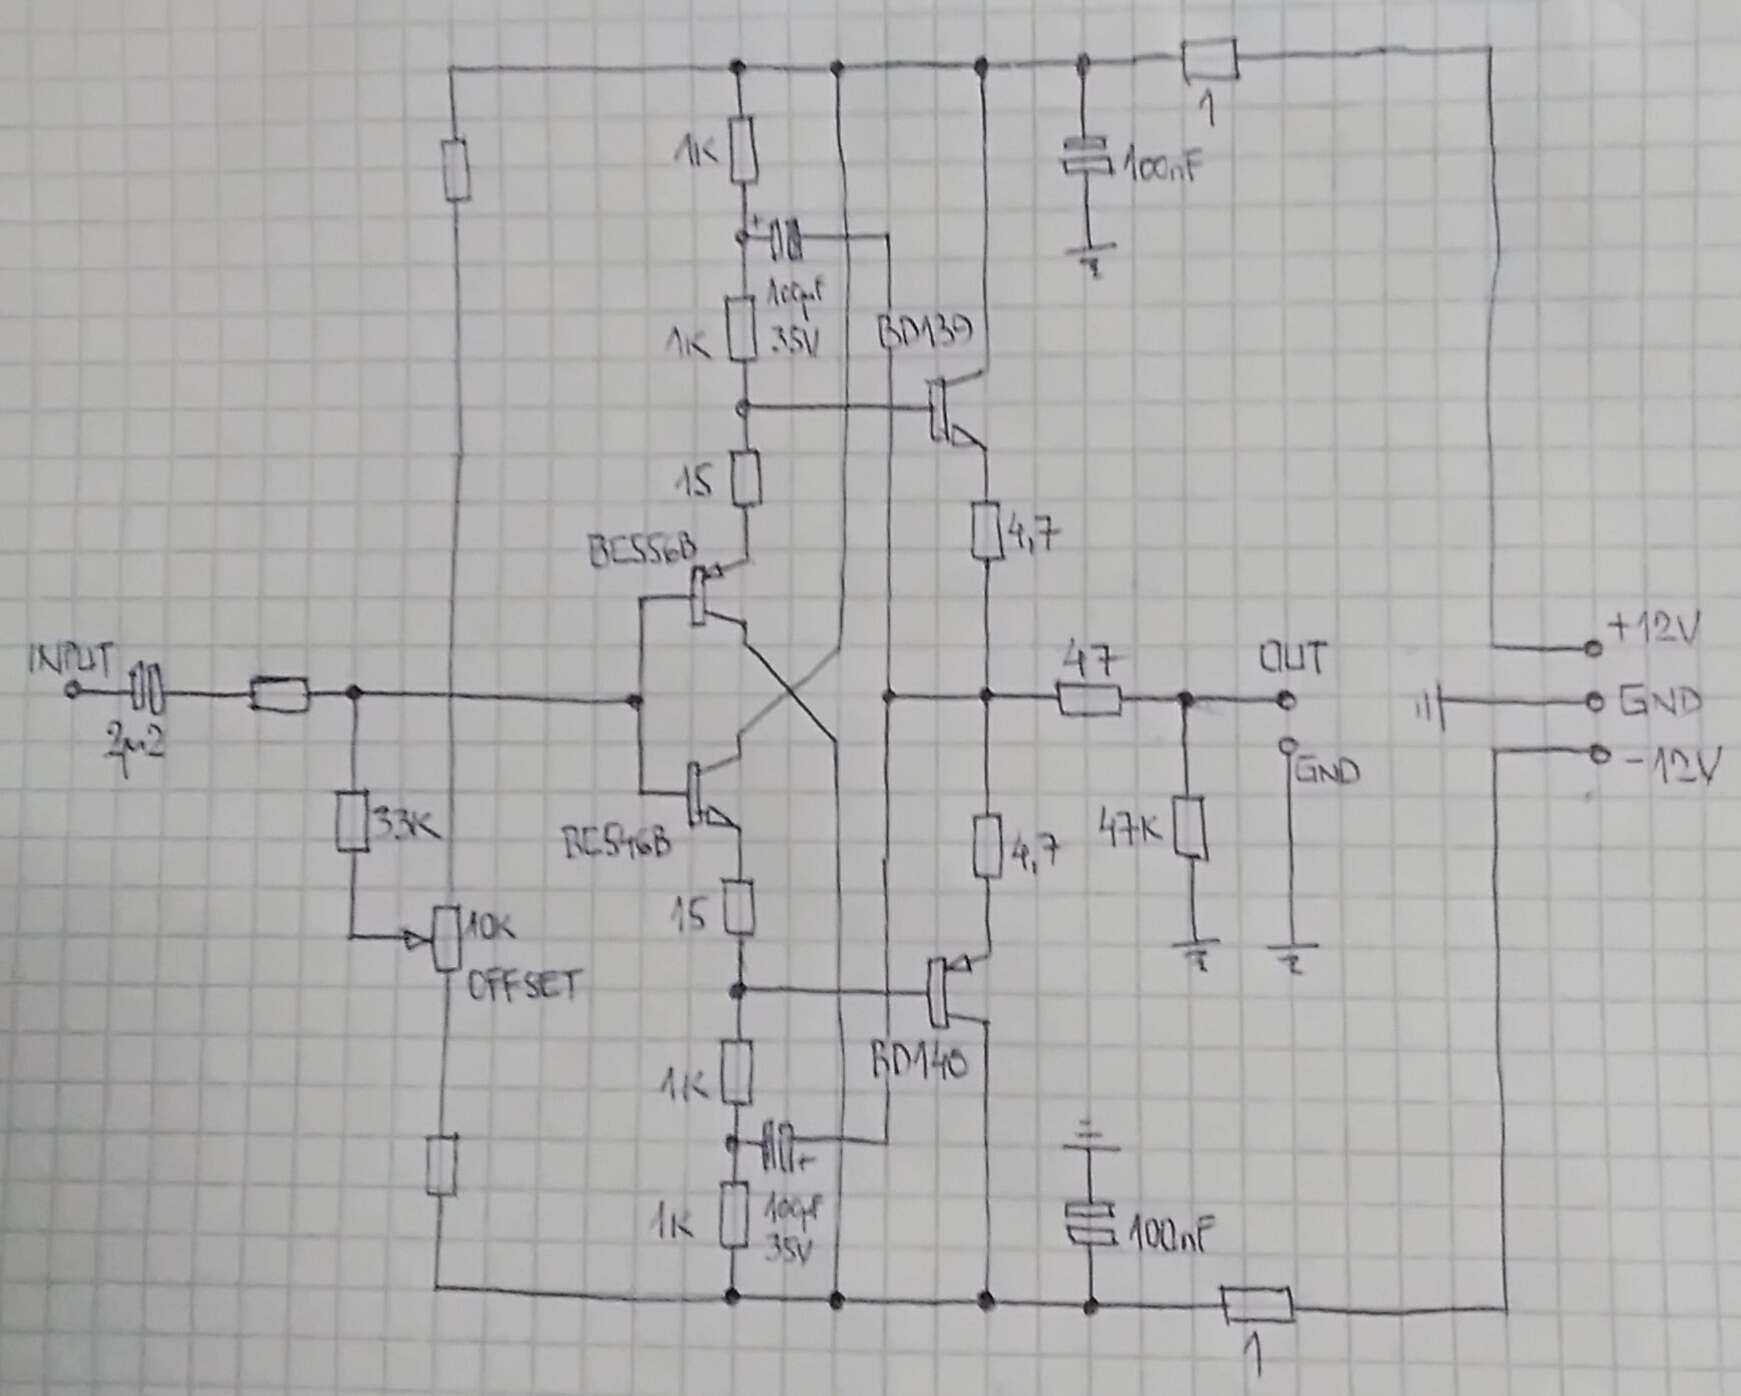 1
1K
100nF
100µF
35V
1K
BD139
15
4,7
BC556B
INPUT
2µ2
47
OUT
+12V
GND
-12V
GND
33K
BC546B
47K
4,7
15
10K
OFFSET
1K
BD140
1K
100µF
35V
100nF
1